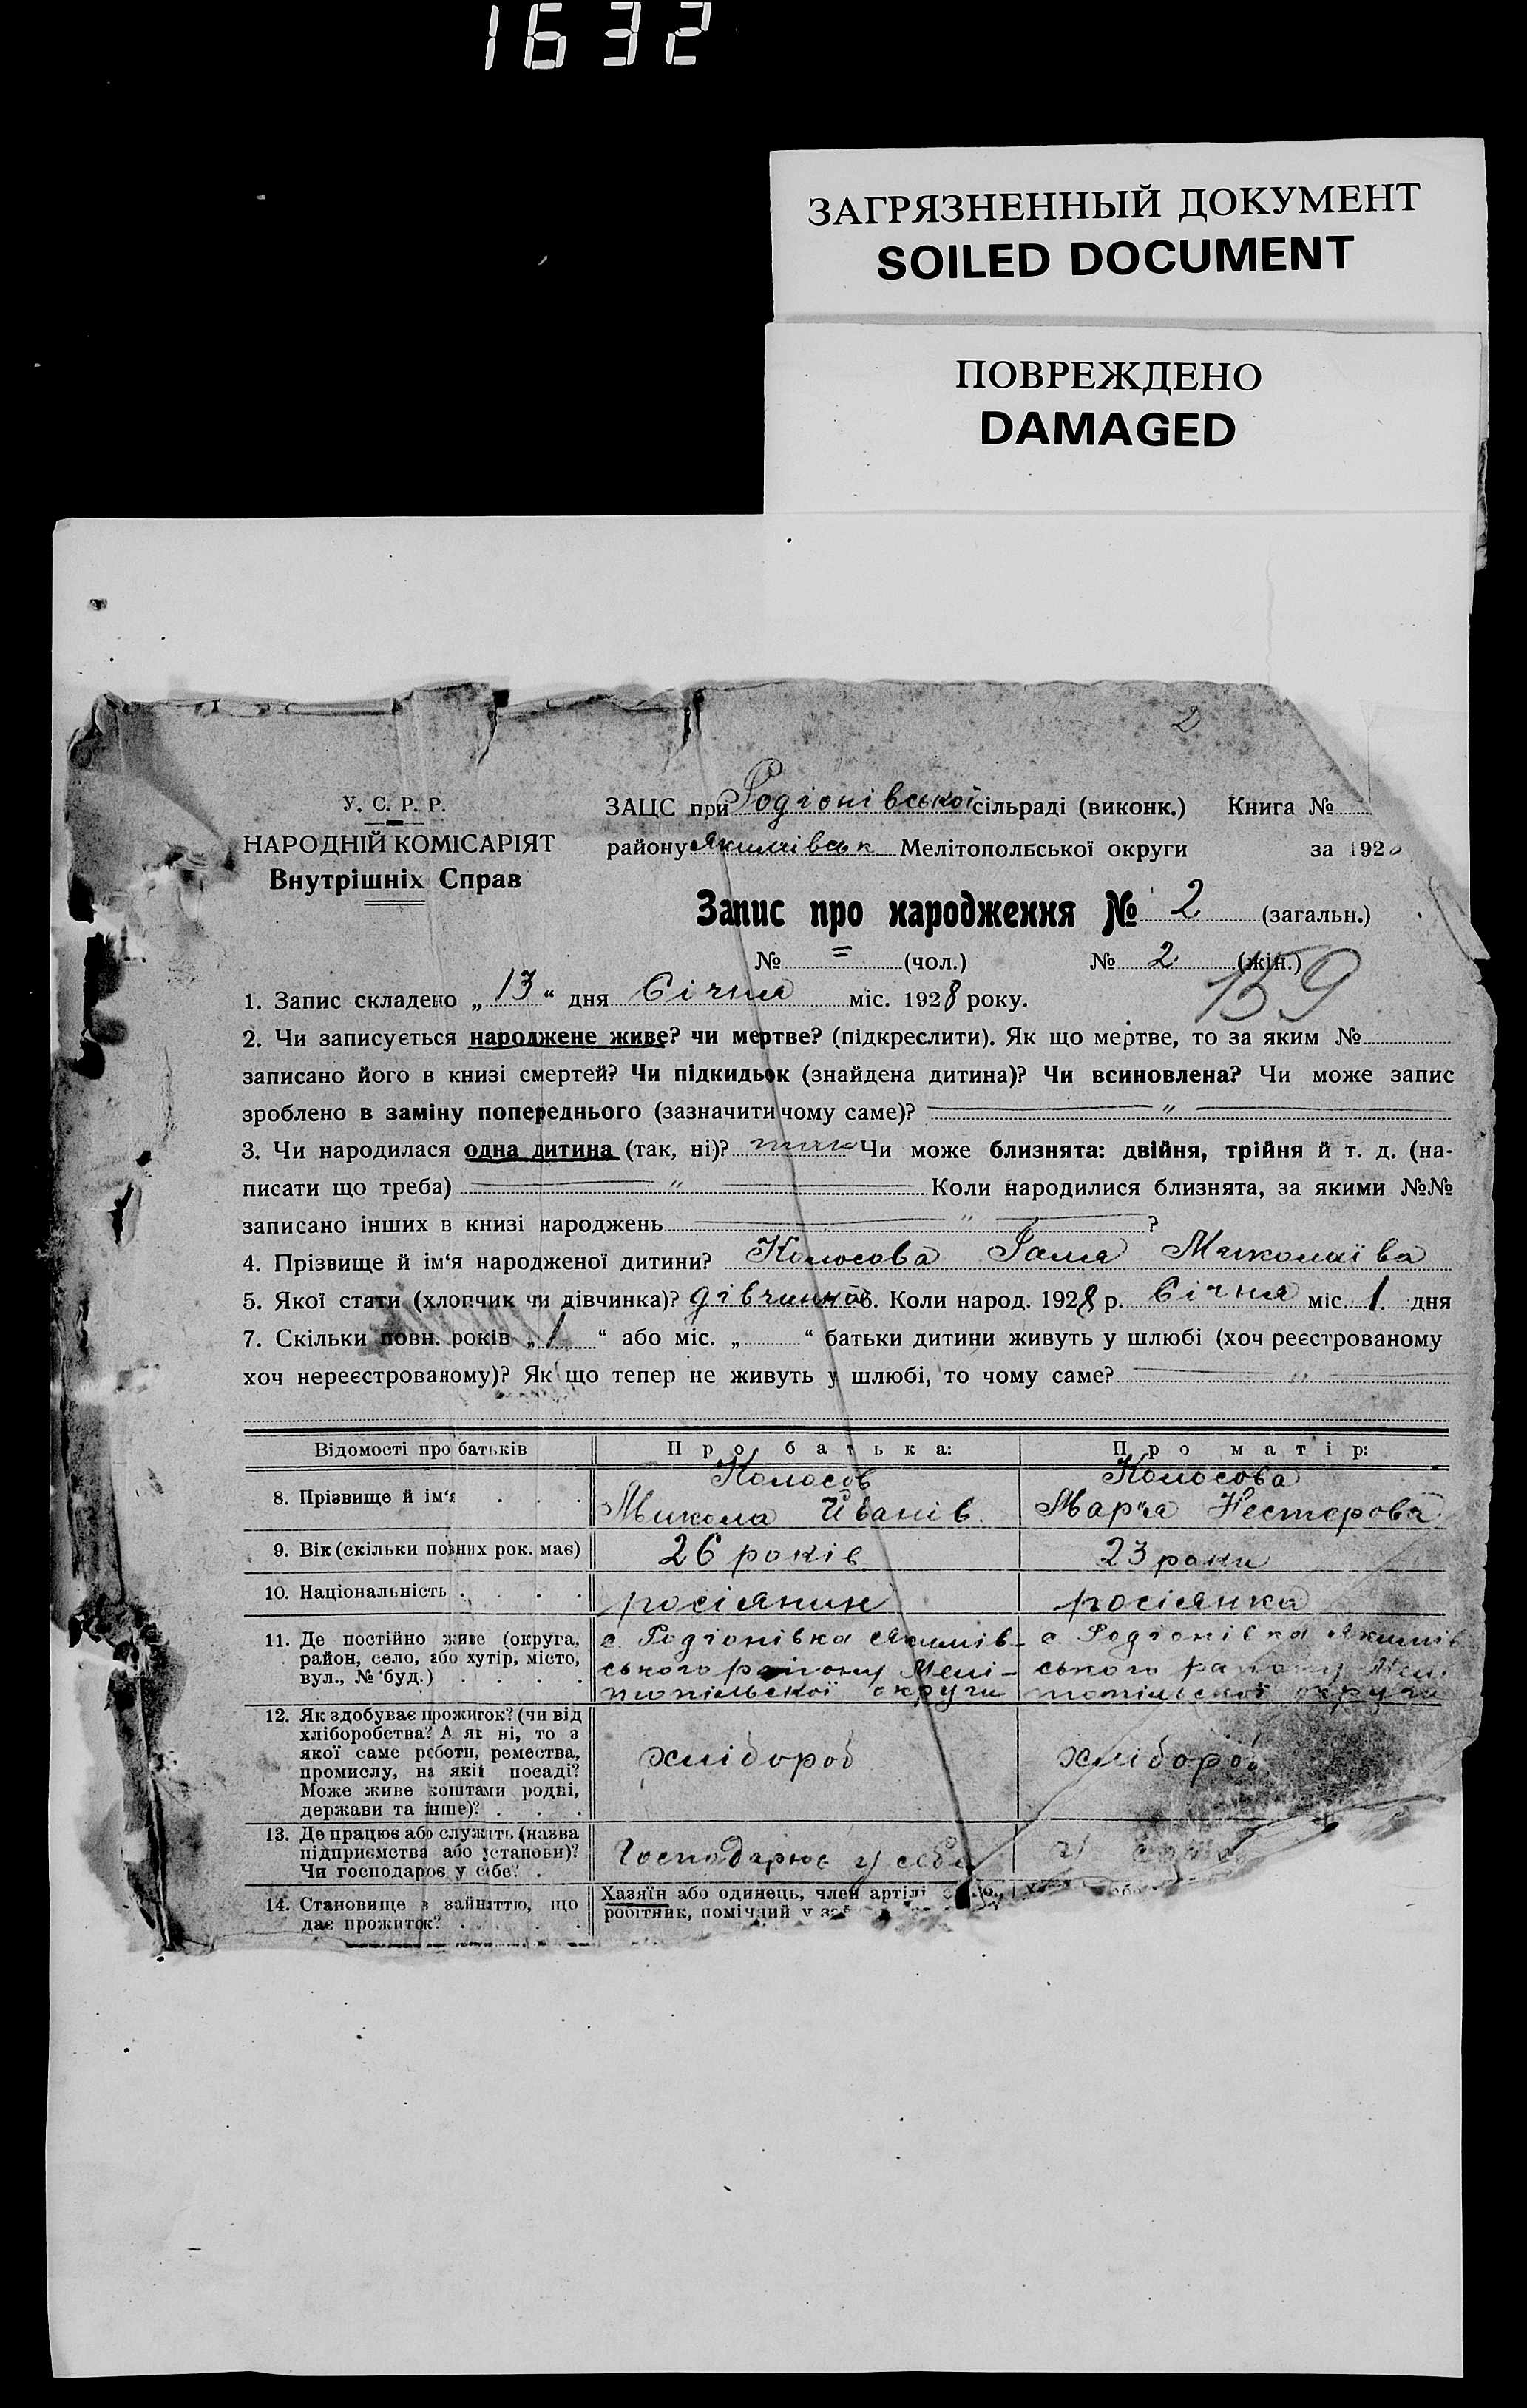 1632
ЗАГРЯЗНЕННЫЙ ДОКУМЕНТ
SOILED DOCUMENT
ПОВРЕЖДЕНО
DAMAGED
2
У. С. Р. Р.
НАРОДНІЙ КОМІСАРІЯТ
Внутрішніх Справ
ЗАЦС при Родіонівської сільраді (виконк.) Книга №
району Якимівськ Мелітопольської округи за 192
Запис про народження № 2 (загальн.)
№ = (чол.) № 2 (жін.)
159
1. Запис складено „13“ дня Січня міс. 1928 року.
2. Чи записується народжене живе? чи мертве? (підкреслити). Як що мертве, то за яким №
записано його в книзі смертей? Чи підкидьок (знайдена дитина)? Чи всиновлена? Чи може запис
зроблено в заміну попереднього (зазначити чому саме)? — " —
3. Чи народилася одна дитина (так, ні)? так Чи може близнята: двійня, трійня й т. д. (на-
писати що треба) — " — Коли народилися близнята, за якими №№
записано інших в книзі народжень — " — ?
4. Прізвище й ім‘я народженої дитини? Колосова Галя Миколаїва
5. Якої стати (хлопчик чи дівчинка)? дівчинка 6. Коли народ. 1928 р. Січня міс. 1. дня
7. Скільки повн. років „1“ або міс. „ “ батьки дитини живуть у шлюбі (хоч реєстрованому
хоч нереєстрованому)? Як що тепер не живуть у шлюбі, то чому саме? — " —
Відомості про батьків Про батька: Про матір:
8. Прізвище й ім‘я . . . Колосов Микола Іванів. Колосова Мар‘я Нестерова
9. Вік (скільки повних рок. має) 26 років 23 роки
10. Національність . . . . росіянин росіянка
11. Де постійно живе (округа,
район, село, або хутір, місто,
вул., № буд.) . . . .
с. Родіонівка Якимів-
ського району Мелі-
топільскої округи
с. Родіонівка Якимів
ського району Мелі
топільскої округи
12. Як здобуває прожиток? (чи від
хліборобства? А як ні, то з
якої саме роботи, ремества,
промислу, на якій посаді?
Може живе коштами родні,
держави та інше)? . . .
хлібороб
хлібороб
13. Де працює або служить (назва
підприємства або установи)?
Чи господарює у себе? .
Господарює у себе
у
14. Становище в зайняттю, що
дає прожиток? . . . .
Хазяїн або одинець, член артілі
робітник, помічний у